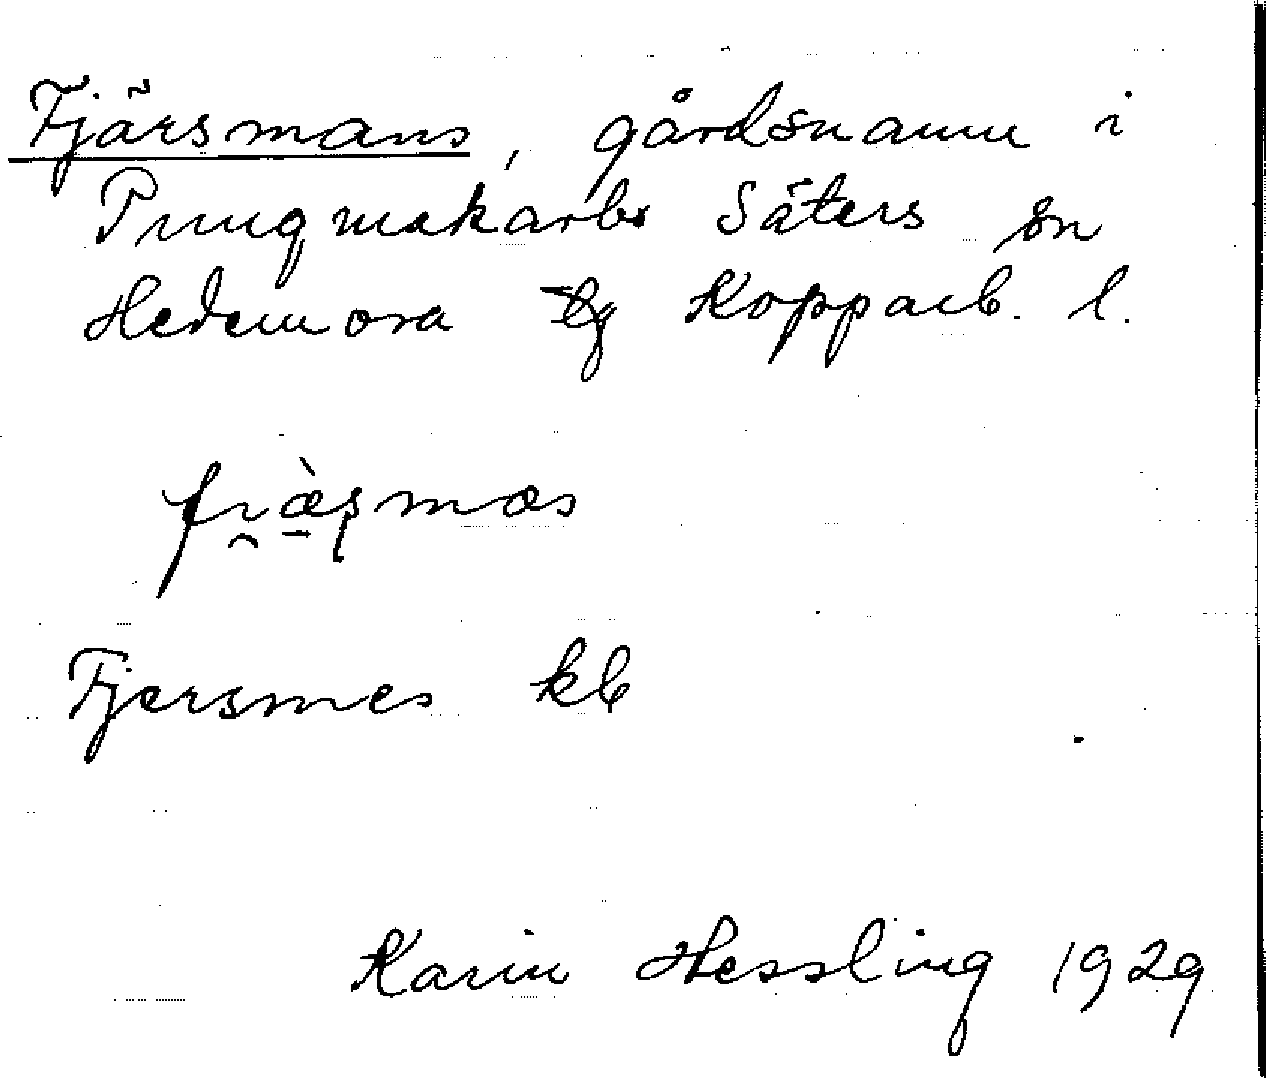 Fjärsmans, gårdsnamn i
Pungmakarbo Säters sn
Hedemora tg Kopparb. l.
Fjersmes kb
Karin Hessling 1929